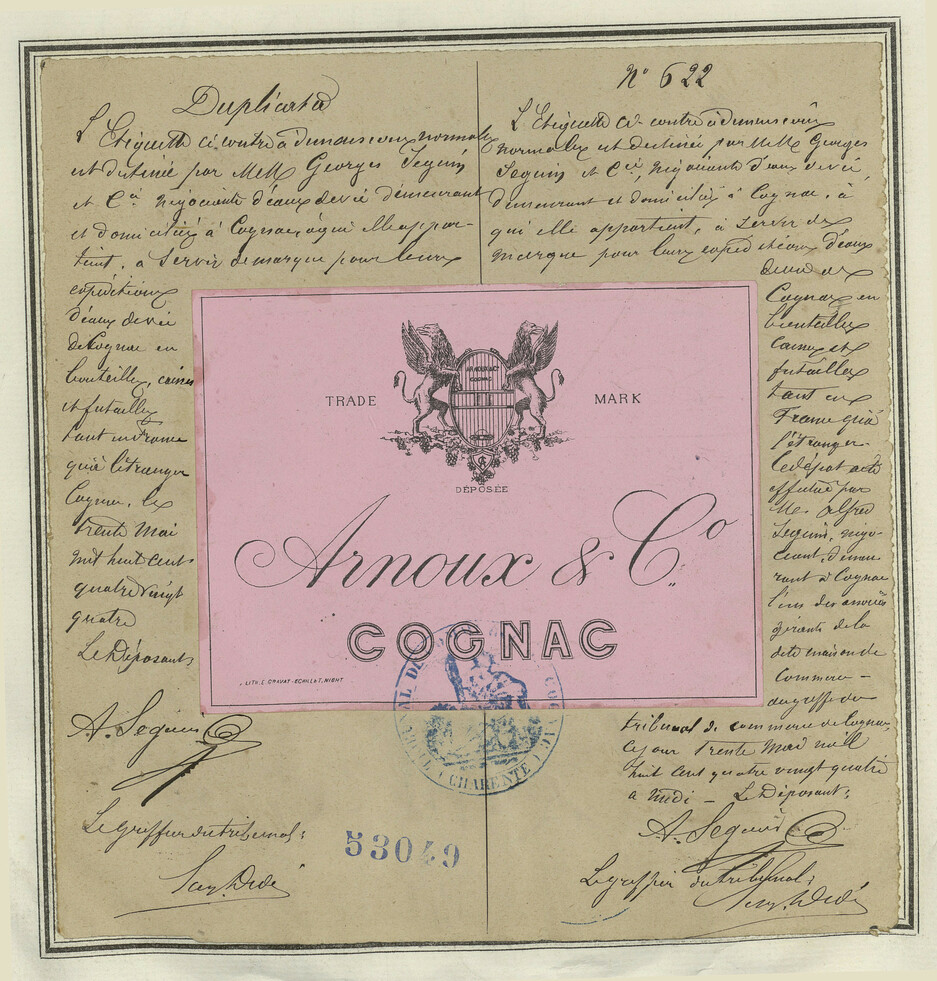 Duplicata
L'Etiquette ci contre à dimensions normales
est destinée par MM Georges Seguin
et Cie négociants d'eaux de vie demeurant
et domiciliés à Cognac, à qui elle appar-
tient, a servir de marque pour leurs
expéditions
d'eaux de vie
de Cognac en
bouteilles, caisses
et futailles
tant en France
qu'à l'étranger
Cognac, le
trente Mai
mil huit cent
quatre vingt
quatre
Le Déposant,
A. Seguin
Le Greffier du tribunal,
N° 622
L'Etiquette ci contre à dimensions
normales est destinée par MM. Georges
Seguin et Cie, négociants d'eaux de vie,
demeurant et domiciliés à Cognac, à
qui elle appartient, à servir de
marque pour leurs expéditions d'eaux
de vie de
Cognac en
bouteilles
caisses et
futailles
tant en
France qu'à
l'étranger.
Le dépot a été
effectué par
Mr. Alfred
Seguin, négo-
ciant, demeu-
rant à Cognac
l'un des associés
gérants de la
dite maison de
Commerce –
au greffe du
tribunal de commerce de Cognac,
ce jour trente Mai mil
huit cent quatre vingt quatre
a midi – Le Déposant,
A. Seguin
Le greffier du tribunal,
TRADE MARK
ARNOUX & Co
COGNAC
DÉPOSÉE
Arnoux & Co
COGNAC
LITH. E. CRAVAT-ECHILLAT, NIORT
(CHARENTE)
53049